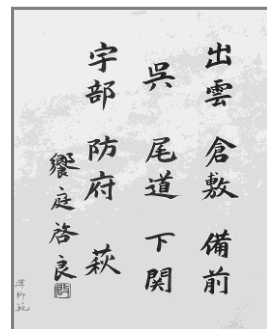 出雲 倉敷 備前
呉 尾道 下関
宇部 防府 萩
饗庭啓良